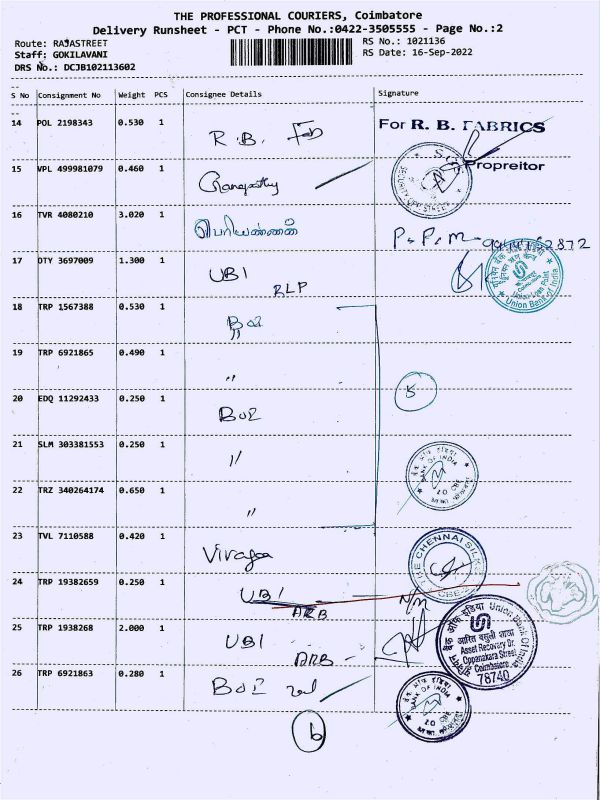 THE PROFESSIONAL COURIERS, Coimbatore
Delivery Runsheet - PCT - Phone No.:0422-3505555 - Page No.:2
Route: RAJASTREET
RS No.: 1021136
Staff: GOKILAVANI
RS Date: 16-Sep-2022
DRS No.: DCJB102113602
S No Consignment No Weight PCS Consignee Details Signature
14 POL 2198343 0.530 1 R.B. Fab For R. B. FABRICS
Propreitor
15 VPL 499981079 0.460 1 Ganapathy
16 TVR 4080210 3.020 1 பெரியண்ணன்
17 DTY 3697009 1.300 1 UBI
RLP
Union Loan Point
Union Bank of India
18 TRP 1567388 0.530 1 BOI
19 TRP 6921865 0.490 1 "
5
20 EDQ 11292433 0.250 1 BOI
21 SLM 303381553 0.250 1 "
BANK OF INDIA
22 TRZ 340264174 0.650 1 "
23 TVL 7110588 0.420 1
THE CHENNAI SILKS
CBE
24 TRP 19382659 0.250 1 UBI
ARB
25 TRP 1938268 2.000 1 UBI
ARB -
Union Bank Of India
Asset Recovery Br.
Oppanakara Street
Coimbatore
78740
26 TRP 6921863 0.280 1 BOI
BANK OF INDIA
6